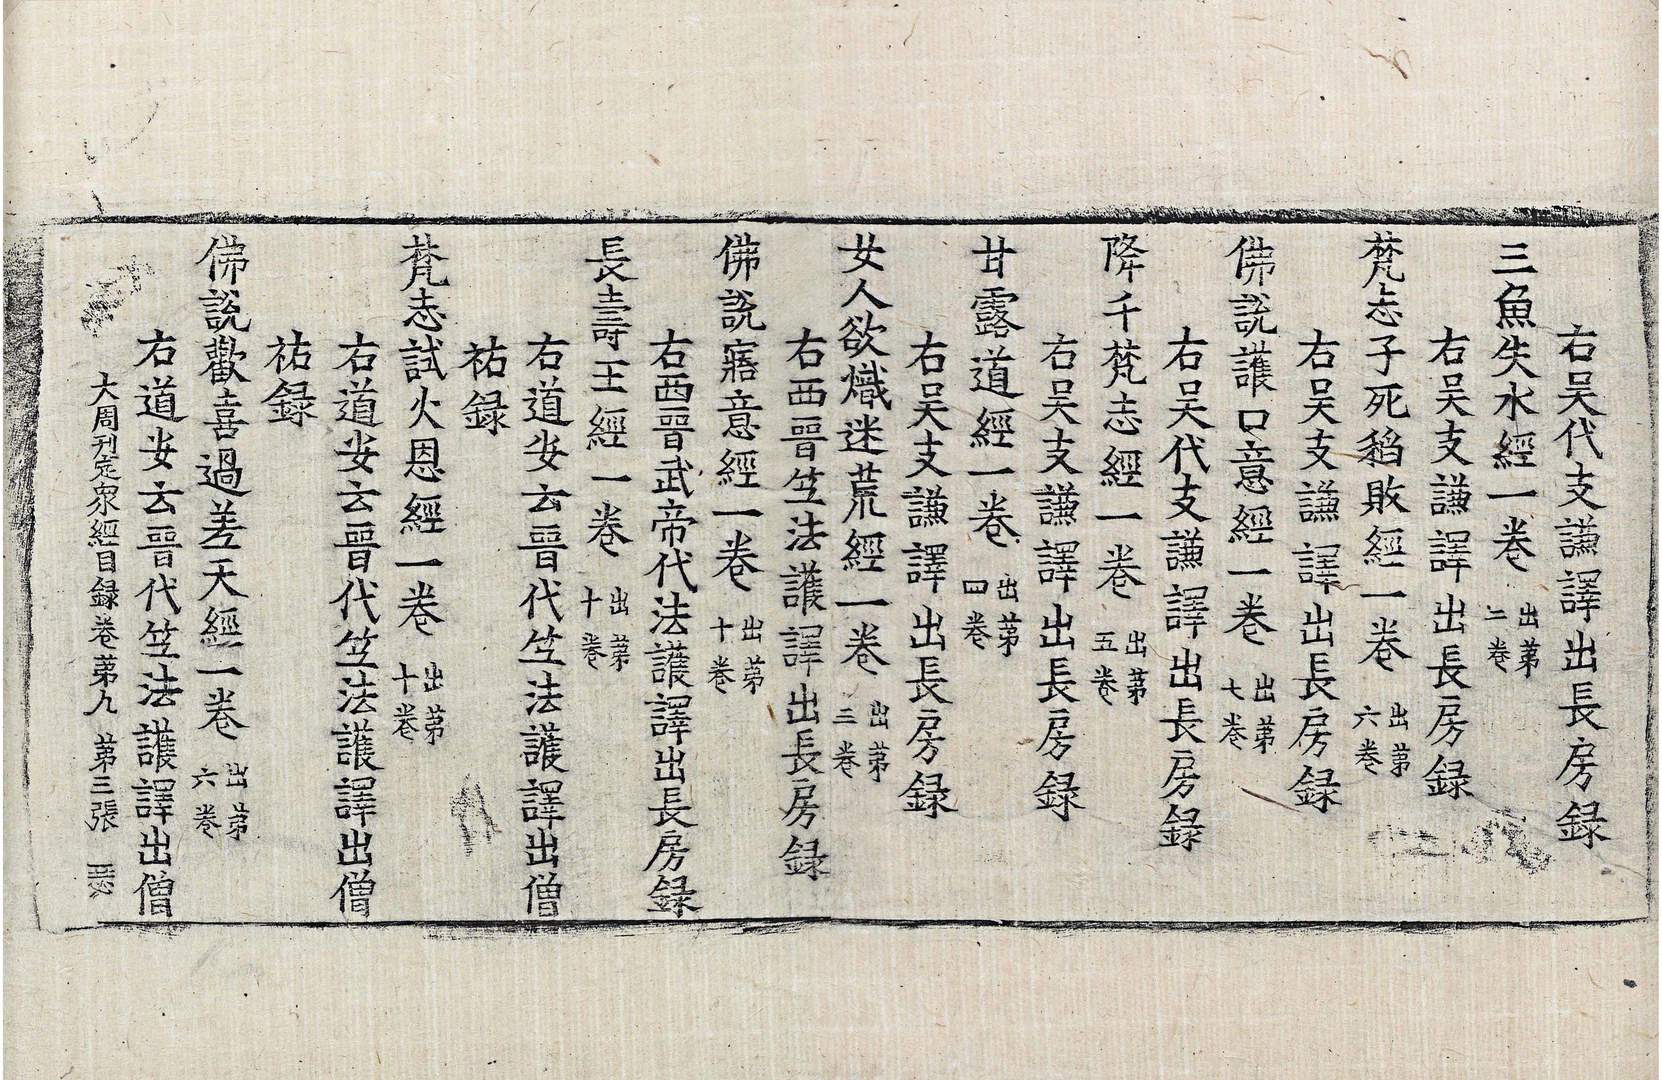 右吴代支謙譯出長房録
三魚失水經一卷 出第二卷
右吴支謙譯出長房録
梵志子死稻敗經一卷 出第六卷
右吴支謙譯出長房録
佛說護口意經一卷 出第七卷
右吴代支謙譯出長房録
降千梵志經一卷 出第五卷
右吴支謙譯出長房録
甘露道經一卷 出第四卷
右吴支謙譯出長房録
女人欲熾迷荒經一卷 出第三卷
右西晉竺法護譯出長房録
佛說寤意經一卷 出第十卷
右西晉武帝代法護譯出長房録
長壽王經一卷 出第十卷
右道安云晉代竺法護譯出僧
祐録
梵志試火恩經一卷 出第十卷
右道安云晉代竺法護譯出僧
祐録
佛說歡喜過差天經一卷 出第六卷
右道安云晉代竺法護譯出僧
大周刊定衆經目録卷第九 第三張